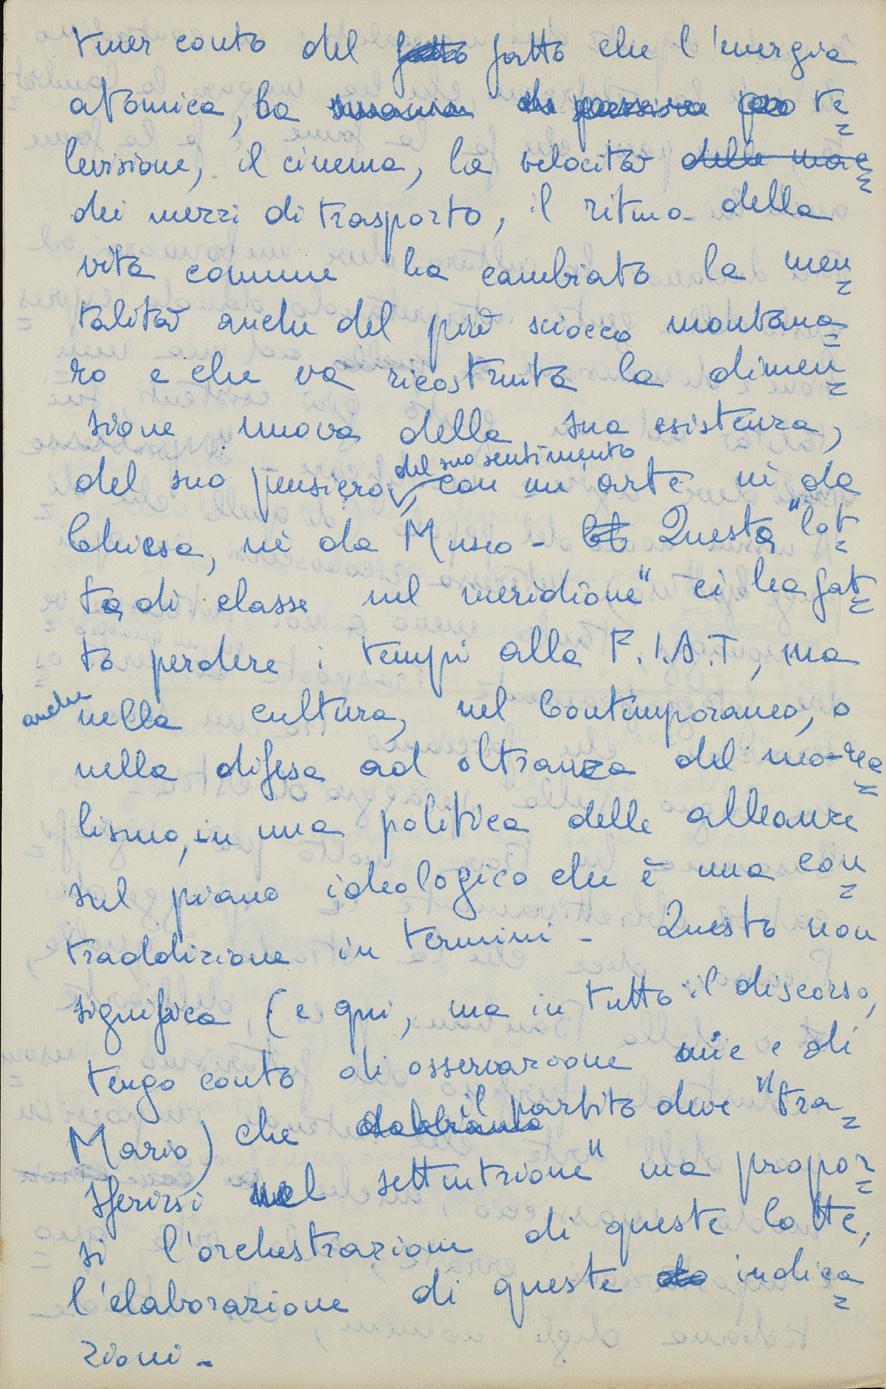 tener conto del fatto fatto che l'energia
atomica, la te=
levisione, il cinema, la velocità delle mac=
dei mezzi di trasporto, il ritmo della
vita comune ha cambiato la men=
talità anche del più sciocco montana=
ro e che va ricostruita la dimen=
sione nuova della sua esistenza,
del suo sentimento
del suo pensiero con un'arte nè da
Chiesa, nè da Museo - Questa "lot=
ta di classe nel meridione" ci ha fat=
to perdere i tempi alla F.I.A.T, ma
anche nella cultura, nel Contemporaneo, o
nella difesa ad oltranza del neo-rea=
lismo, in una politica delle alleanze
sul piano ideologico che è una con=
traddizione in termini - Questo non
significa (e qui, ma in tutto il discorso,
tengo conto di osservazione mie e di
Mario) che dobbiamo il partito deve "tra=
sferirsi nel settentrione" ma propor=
si l'orchestrazione di queste lotte,
l'elaborazione di queste indica=
zioni -